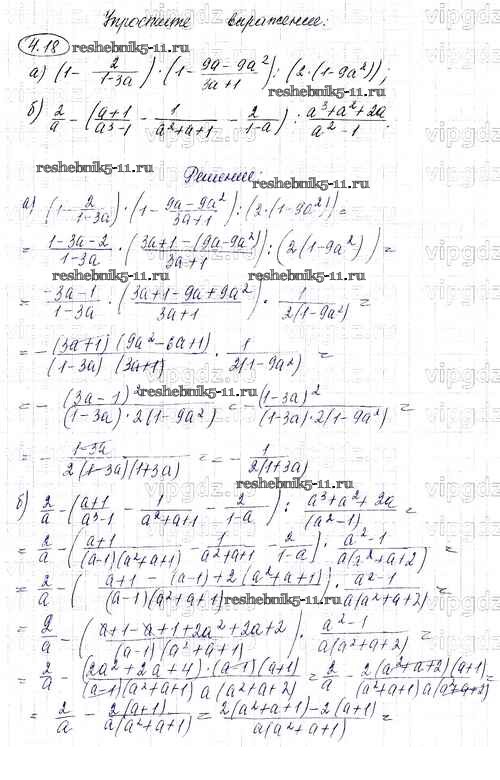 Упростите выражение:
4.18
reshebnik5-11.ru
а) (1 - 2/(1-3a)) · (1 - (9a-9a²)/(3a+1)) : (2·(1-9a²));
reshebnik5-11.ru
б) 2/a - ((a+1)/(a³-1) - 1/(a²+a+1) - 2/(1-a)) : (a³+a²+2a)/(a²-1).
reshebnik5-11.ru
Решение:
reshebnik5-11.ru
а) (1 - 2/(1-3a)) · (1 - (9a-9a²)/(3a+1)) : (2·(1-9a²)) =
= (1-3a-2)/(1-3a) · ((3a+1-(9a-9a²))/(3a+1)) : (2(1-9a²)) =
reshebnik5-11.ru reshebnik5-11.ru
= (-3a-1)/(1-3a) · ((3a+1-9a+9a²)/(3a+1)) · 1/(2(1-9a²)) =
= - (3a+1)(9a²-6a+1)/((1-3a)(3a+1)) · 1/(2(1-9a²)) =
reshebnik5-11.ru
= - (3a-1)²/((1-3a)·2(1-9a²)) = - (1-3a)²/((1-3a)·2(1-9a²)) =
= - (1-3a)/(2(1-3a)(1+3a)) = - 1/(2(1+3a))
reshebnik5-11.ru
б) 2/a - ((a+1)/(a³-1) - 1/(a²+a+1) - 2/(1-a)) : (a³+a²+2a)/(a²-1) =
= 2/a - ((a+1)/((a-1)(a²+a+1)) - 1/(a²+a+1) - 2/(1-a)) · (a²-1)/(a(a²+a+2)) =
= 2/a - ((a+1-(a-1)+2(a²+a+1))/((a-1)(a²+a+1))) · (a²-1)/(a(a²+a+2)) =
reshebnik5-11.ru
= 2/a - ((a+1-a+1+2a²+2a+2)/((a-1)(a²+a+1))) · (a²-1)/(a(a²+a+2)) =
= 2/a - (2a²+2a+4)·(a-1)(a+1)/((a-1)(a²+a+1)a(a²+a+2)) = 2/a - 2(a²+a+2)(a+1)/((a²+a+1)a(a²+a+2)) =
= 2/a - 2(a+1)/(a(a²+a+1)) = (2(a²+a+1)-2(a+1))/(a(a²+a+1)) =